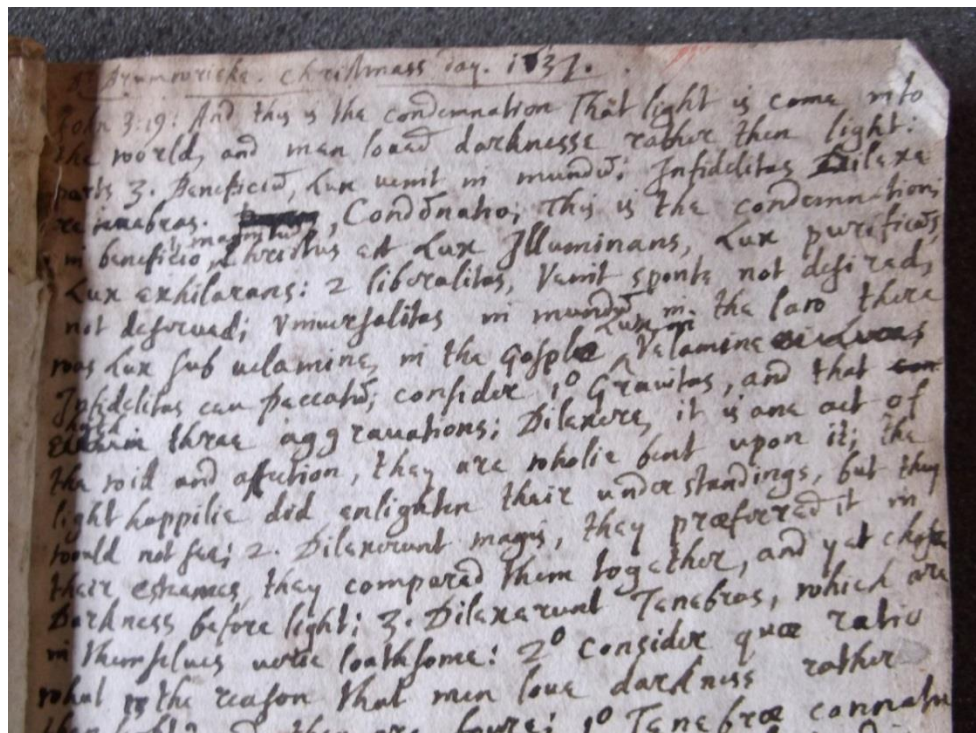 At Christmass day. 1637.
John 3:19: And this is the condemnation That light is come into
the world, and men loued darknesse rather then light:
parts 3. Beneficiū, Lux venit in mundū: Infidelitas Dilexe
re tenebras. , Condōnatio; This is the condemnation;
in beneficio, magnitudo, Christus est Lux Illuminans, Lux purificās,
Lux exhilarans: 2 liberalitas, Venit sponte not desired,
not deserued; Vniuersalitas in mundū in the law there
was Lux sub uelamine, in the Gosple Lux Velamine
Infidelitas ceu peccatū; consider 1º Grauitas, and that
hath three aggrauations; Dilexere, it is ane act of
the will and affection, they are wholie bent upon it; the
light happilie did enlighten their understandings, but they
would not see; 2. Dilexerunt magis, they præferred it in
their esteemes, they compared them together, and yet chose
Darkness before light; 3. Dilexerunt Tenebras, which are
in themselues uerie loathsome: 2º consider quæ ratio
what is the reason that men loue darkness rather
then light? are foure; 1º Tenebræ connatu